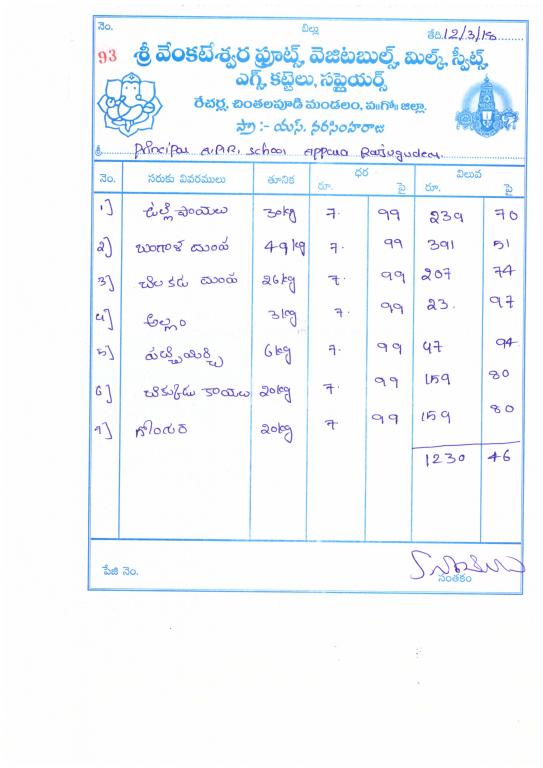 నెం. బిల్లు తేది. 12/3/18
93 శ్రీ వేంకటేశ్వర ఫ్రూట్స్, వెజిటబుల్స్, మిల్క్, స్వీట్స్,
ఎగ్స్, కట్టెలు, సప్లైయర్స్
రేచర్ల, చింతలపూడి మండలం, ప॥గో॥ జిల్లా.
ప్రొ :- యస్. నరసింహరాజు
శ్రీ Principal A.P.R. School Apparao Rajugudem.
నెం. సరుకు వివరములు తూనిక ధర విలువ
రూ. పై రూ. పై
1] ఉల్లి పాయలు 30kg 7. 99 239 70
2] బంగాళ దుంప 49kg 7. 99 391 51
3] చిలకడ దుంప 26kg 7. 99 207 74
4] అల్లం 3kg 7. 99 23. 97
5] పచ్చిమిర్చి 6kg 7. 99 47 94
6] చిక్కుడు కాయలు 20kg 7. 99 159 80
7] గోంగూర 20kg 7 99 159 80
1230 46
పేజి నెం. సంతకం